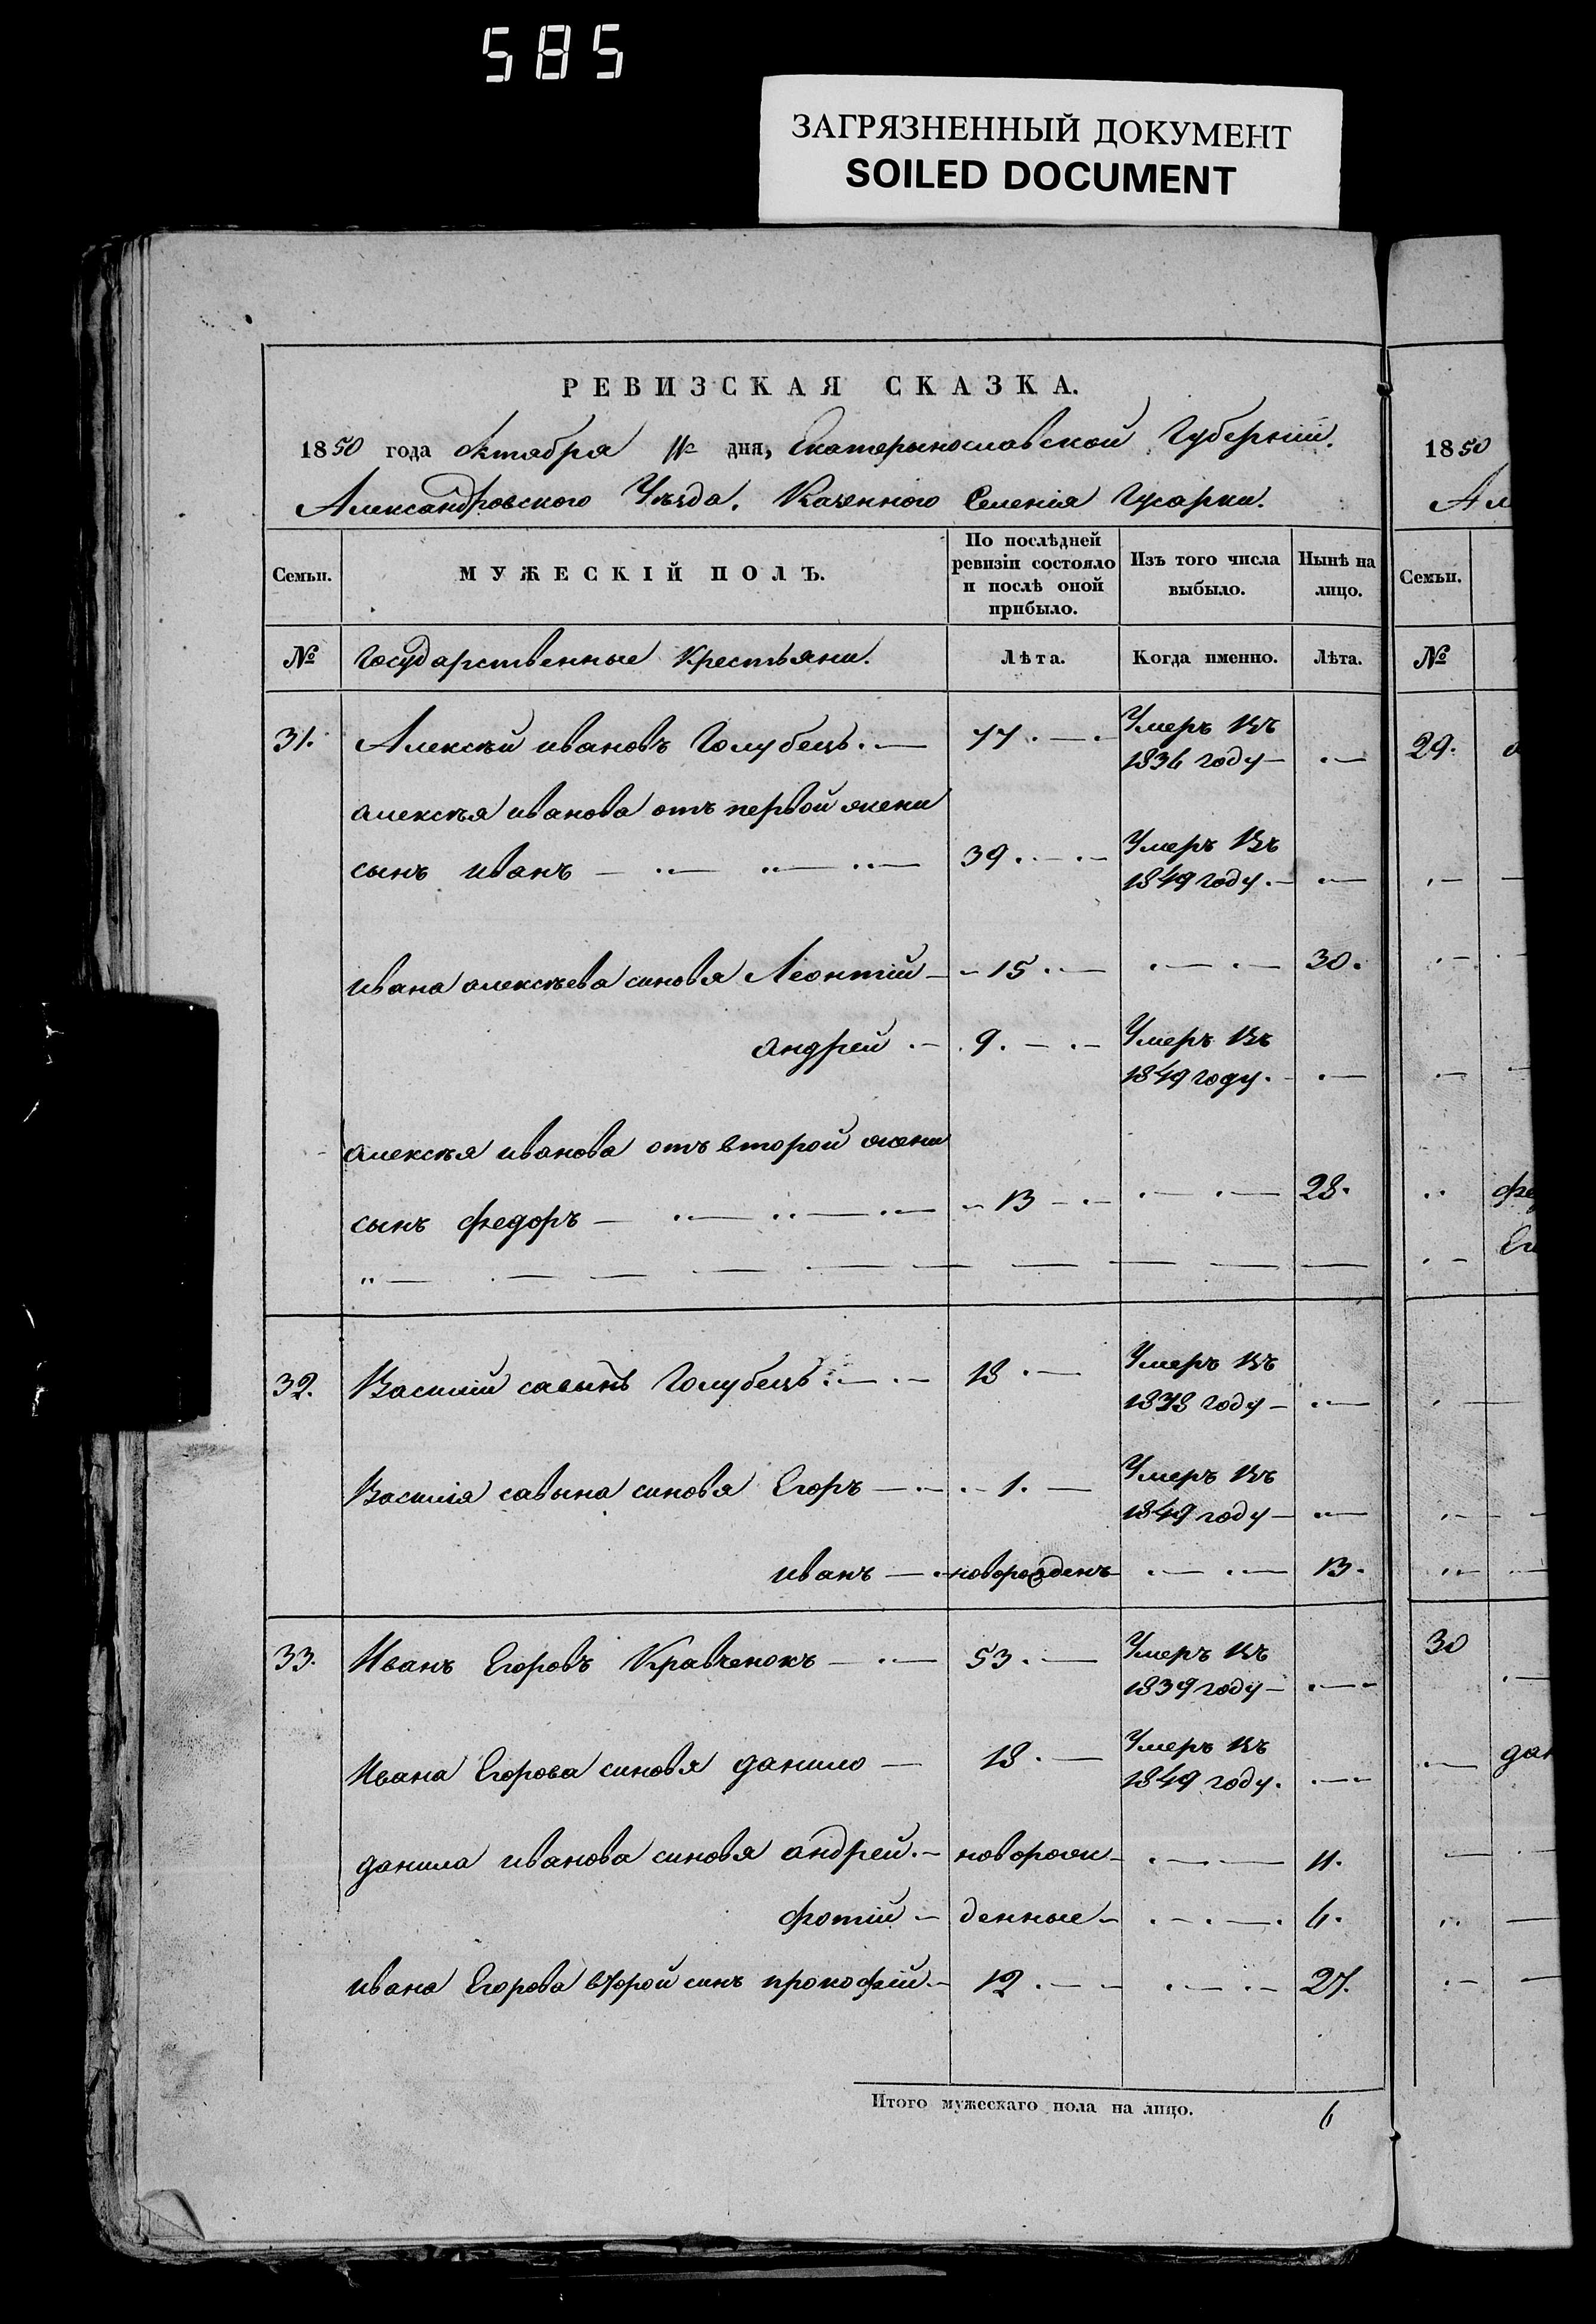 585
ЗАГРЯЗНЕННЫЙ ДОКУМЕНТ
SOILED DOCUMENT
РЕВИЗСКАЯ СКАЗКА.
1850 года октября дня, Екатерынославской Губерніи.
Александровского Уѣзда. Казенного Селенія Гусарки.
Семьи. МУЖЕСКІЙ ПОЛЪ. По послѣдней ревизіи состояло и послѣ оной прибыло. Изъ того числа выбыло. Нынѣ на лицо.
№ Государственные Крестьяни. Лѣта. Когда именно. Лѣта.
31. Алексѣй ивановъ Голубецъ. 77. Умеръ въ
1836 году
алексѣя иванова отъ первой жени
сынъ иванъ 39. Умеръ въ
1849 году.
ивана алексѣева синовя Леонтій 15. 30.
андрей 9. Умеръ въ
1849 году.
алексѣя иванова отъ второй жени
сынъ федоръ 13 28.
32. Василій савынъ Голубецъ. 18. Умеръ въ
1838 году
Василія савына синовя Егоръ 1. Умеръ въ
1849 году
иванъ новорожденъ 13.
33. Иванъ Егоровъ Кравченокъ 53. Умеръ въ
1839 году
Ивана Егорова синовя данило 18. Умеръ въ
1849 году.
данила иванова синовя андрей. новорож 11.
фотій денные 6.
ивана Егорова второй синъ прокофій 12. 27.
Итого мужескаго пола на лицо. 6
1850
Ал
Семьи.
№
29.
фе
Ег
30
дан